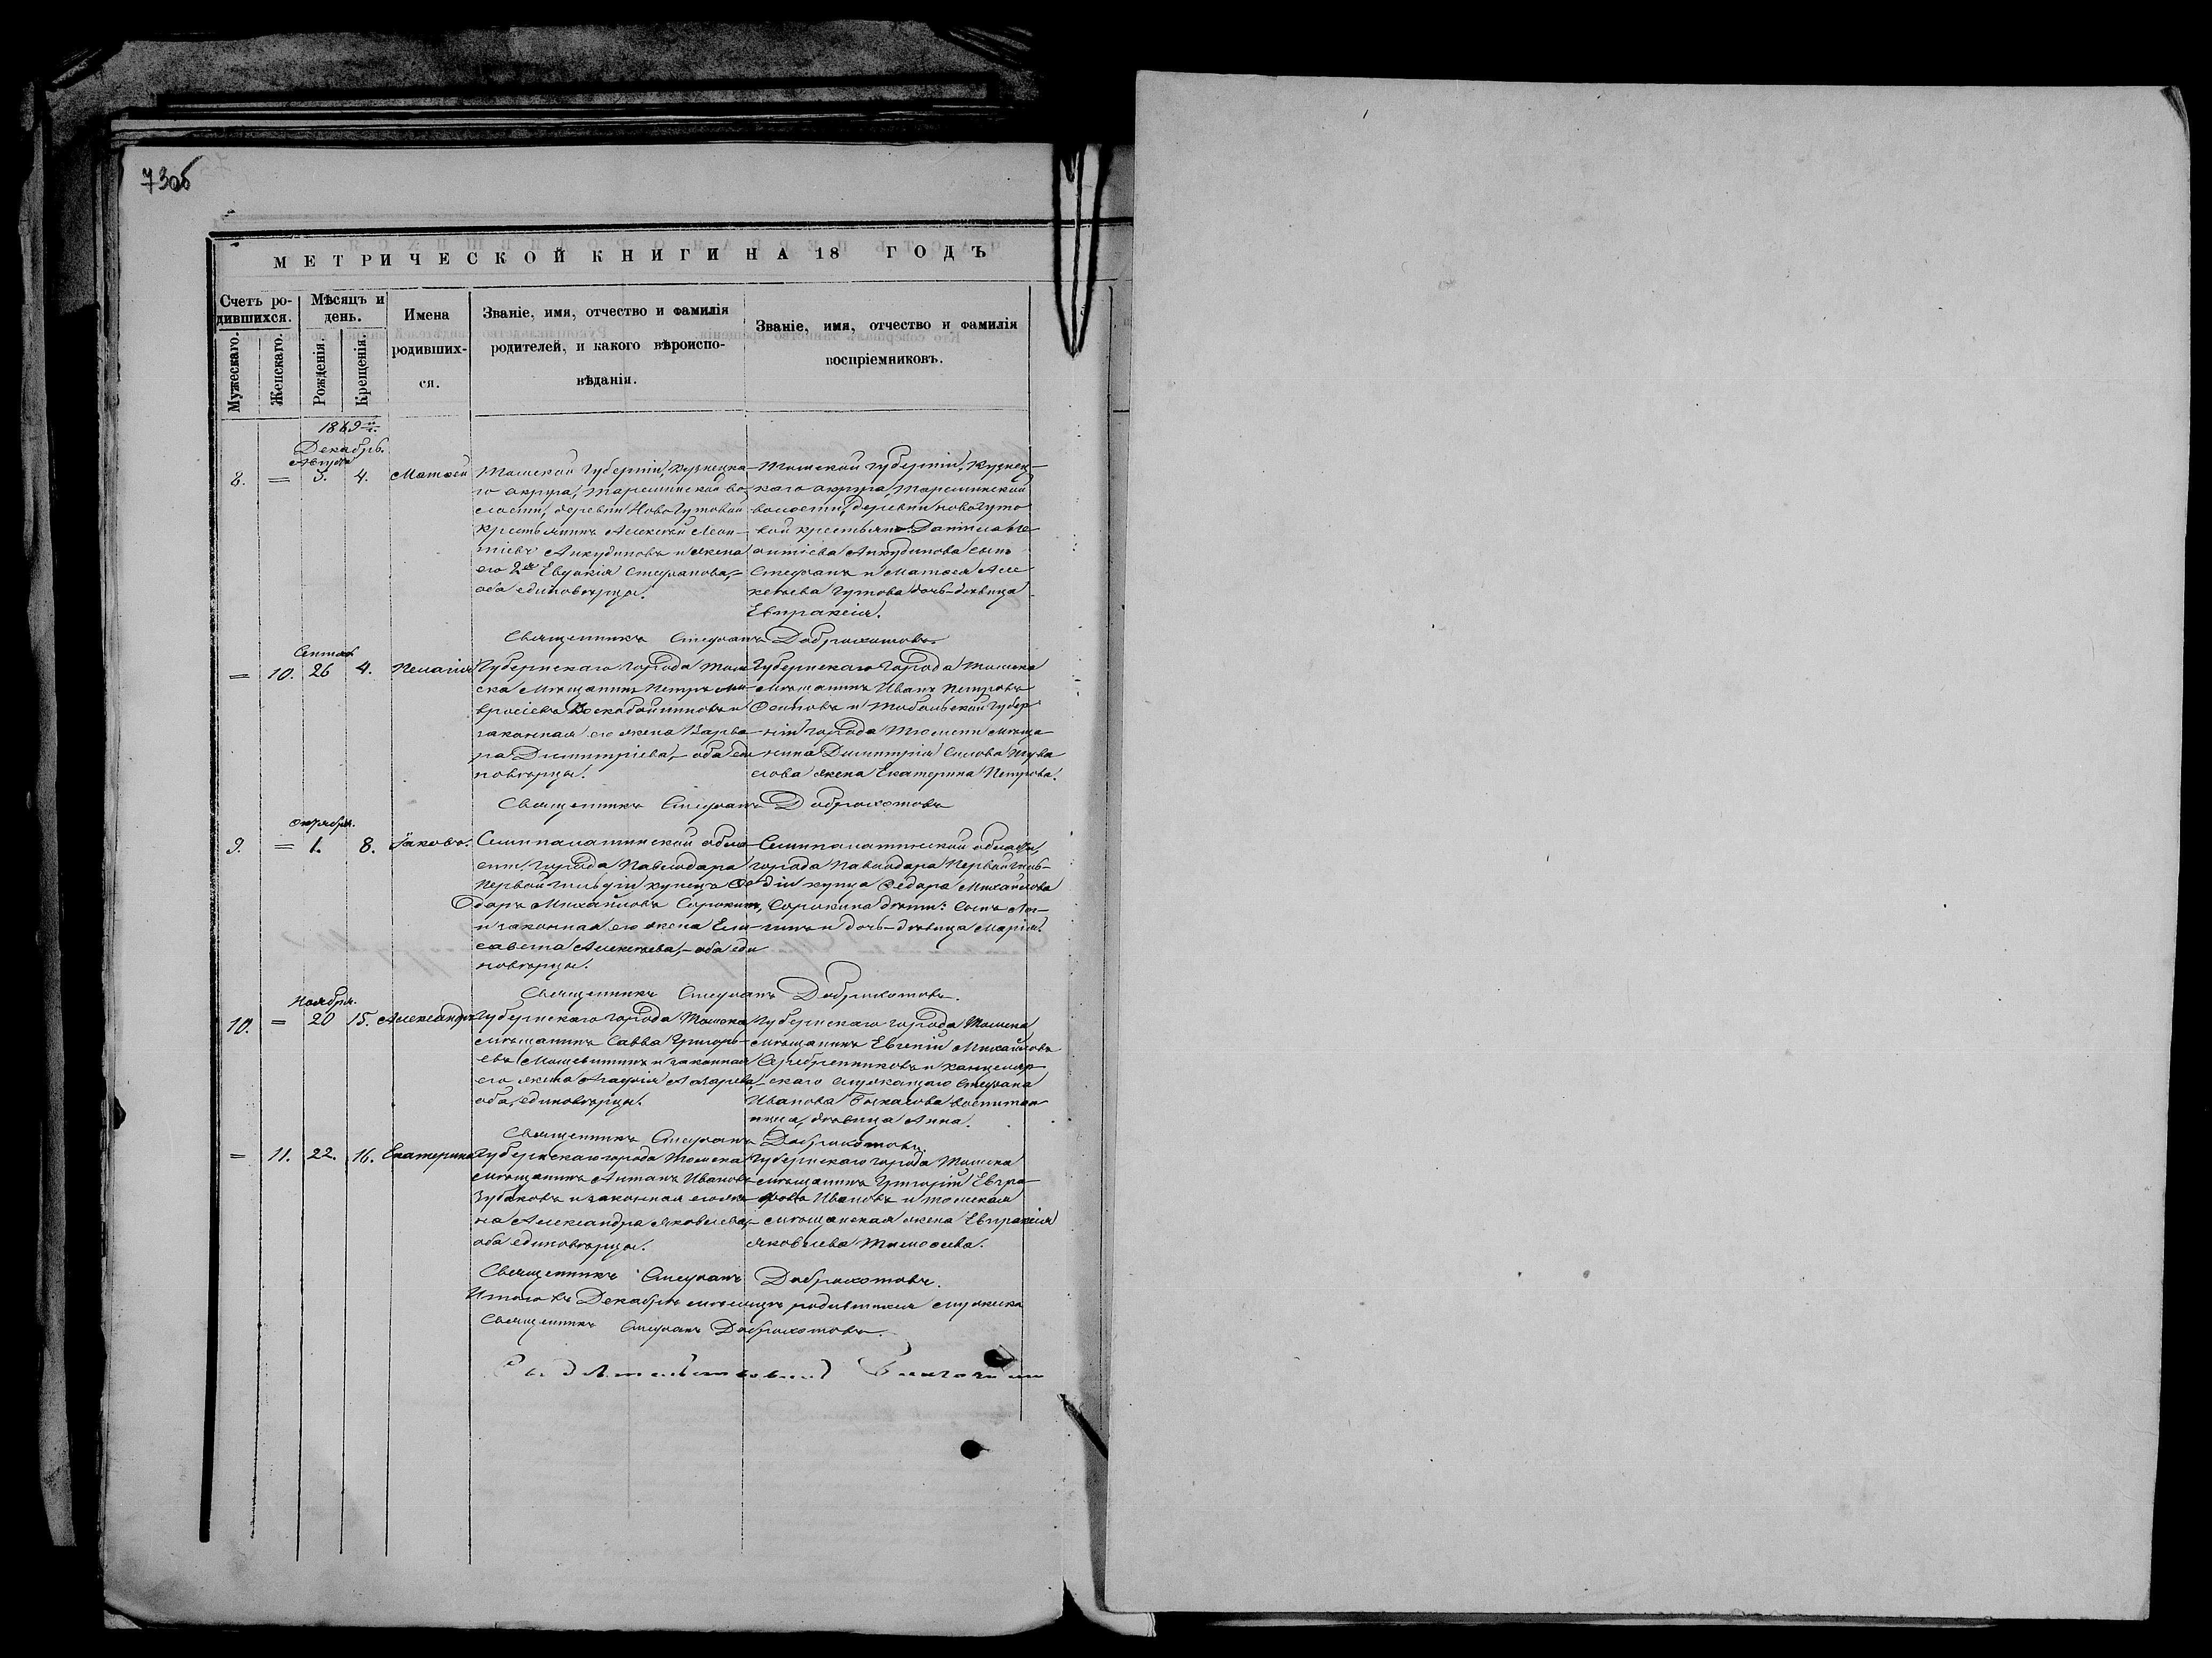 73об
МЕТРИЧЕСКОЙ КНИГИ НА 18 ГОДЪ
Счетъ ро-
дившихся.
Мѣсяцъ и
день.
Имена
родивших-
ся.
Званіе, имя, отчество и фамилія
родителей, и какого вѣроиспо-
вѣданія.
Званіе, имя, отчество и фамилія
воспріемниковъ.
Мужескаго.
Женскаго.
Рожденія.
Крещенія.
1869 г.
Декабрь.
Августа
8. = 3. 4. Матѳей
Томской Губерніи, Кузнецка-
го округа, Тарсминской во-
лости, деревни Ново Гутовой
крестьянинъ Алексѣй Леон-
тіевъ Анкудиновъ и жена
его 2я Евдокія Стефанова,-
оба единовѣрцы.
Томской губерніи, Кузнец-
каго округа, Тарсминской
волости, деревни Новогуто
вой крестьян Даніила Ле-
онтіева Анкудинова сынъ
Стефанъ и Матѳея Але
ксѣева Гутова дочь-дѣвица
Евпраксія.
Священникъ Стефанъ Доброхотовъ.
Сентяб.
= 10. 26 4. Пелагія
Губернскаго города Том
ска Мѣщанинъ Петръ Ам
вросіевъ Воскобойниковъ и
законная его жена Варва
ра Димитріева,- оба еди
новѣрцы.
Губернскаго города Томска
Мѣщанинъ Иванъ Петровъ
Осиповъ и Тобольской губер
ніи города Тюмени мѣща
нина Димитрія Силова Шува
лова жена Екатерина Петрова.
Священникъ Стефанъ Доброхотовъ
Октября.
9. = 1. 8. Іаковъ.
Семипалатинской обла-
сти, города Павлодара
Первой гильдіи купецъ Ѳе
одоръ Михайловъ Сорокинъ,
и законная его жена Ели
савета Алексѣева,- оба еди
новѣрцы.
Семипалатинской области,
города Павлодара Первой гиль-
діи купца Ѳедора Михайлова
Сорокина дѣти: сынъ Ло-
гинъ и дочь-дѣвица Марія.
Священникъ Стефанъ Доброхотовъ.
Ноября.
10. = 20 15. Александръ
Губернскаго города Томска
мѣщанинъ Савва Григорь-
евъ и законная
его жена Агафія Лазарева
оба, единовѣрцы.
Губернскаго города Томска
мѣщанинъ Евгеній Михайловъ
Серебренниковъ и канцеляр-
скаго служащаго Стефана
Иванова воспитан
ница, дѣвица Анна.
Священникъ Стефанъ Доброхотовъ.
= 11. 22. 16. Екатерина
Губернскаго города Томска
мѣщанинъ Антонъ Ивановъ
Зубаковъ и законная его же-
на Александра Яковлева,-
оба единовѣрцы.
Губернскаго города Томска
мѣщанинъ Григорій Евгра-
фовъ Ивановъ и томская
мѣщанская жена Евпраксія
Яковлева Тимоѳеева.
Священникъ Стефанъ Доброхотовъ.
Итого въ Декабрѣ мѣсяцѣ родившихся мужеска
Священникъ Стефанъ Доброхотовъ.